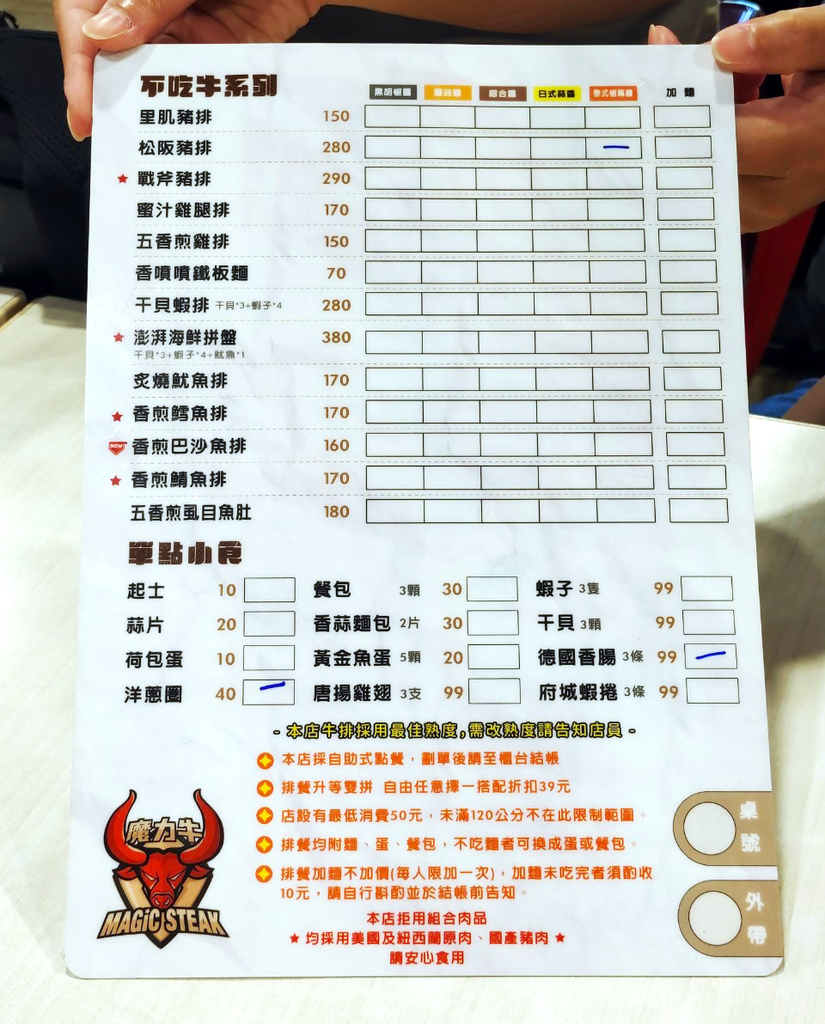 不吃牛系列 黑胡椒醬 蘑菇醬 綜合醬 日式蒜醬 泰式椒麻醬 加麵
里肌豬排 150
松阪豬排 280
戰斧豬排 290
蜜汁雞腿排 170
五香煎雞排 150
香噴噴鐵板麵 70
干貝蝦排 干貝*3+蝦子*4 280
澎湃海鮮拼盤 380
干貝*3+蝦子*4+魷魚*1
炙燒魷魚排 170
香煎鱈魚排 170
NEW 香煎巴沙魚排 160
香煎鯖魚排 170
五香煎虱目魚肚 180
單點小食
起士 10 餐包 3顆 30 蝦子 3隻 99
蒜片 20 香蒜麵包 2片 30 干貝 3顆 99
荷包蛋 10 黃金魚蛋 5顆 20 德國香腸 3條 99
洋蔥圈 40 唐揚雞翅 3支 99 府城蝦捲 3條 99
- 本店牛排採用最佳熟度,需改熟度請告知店員 -
本店採自助式點餐，劃單後請至櫃台結帳
排餐升等雙拼 自由任意擇一搭配折扣39元
店設有最低消費50元，未滿120公分不在此限制範圍。
排餐均附麵、蛋、餐包，不吃麵者可換成蛋或餐包。
排餐加麵不加價(每人限加一次)，加麵未吃完者須酌收
10元，請自行斟酌並於結帳前告知。
本店拒用組合肉品
★ 均採用美國及紐西蘭原肉、國產豬肉 ★
請安心食用
魔力牛
MAGIC STEAK
桌號
外帶